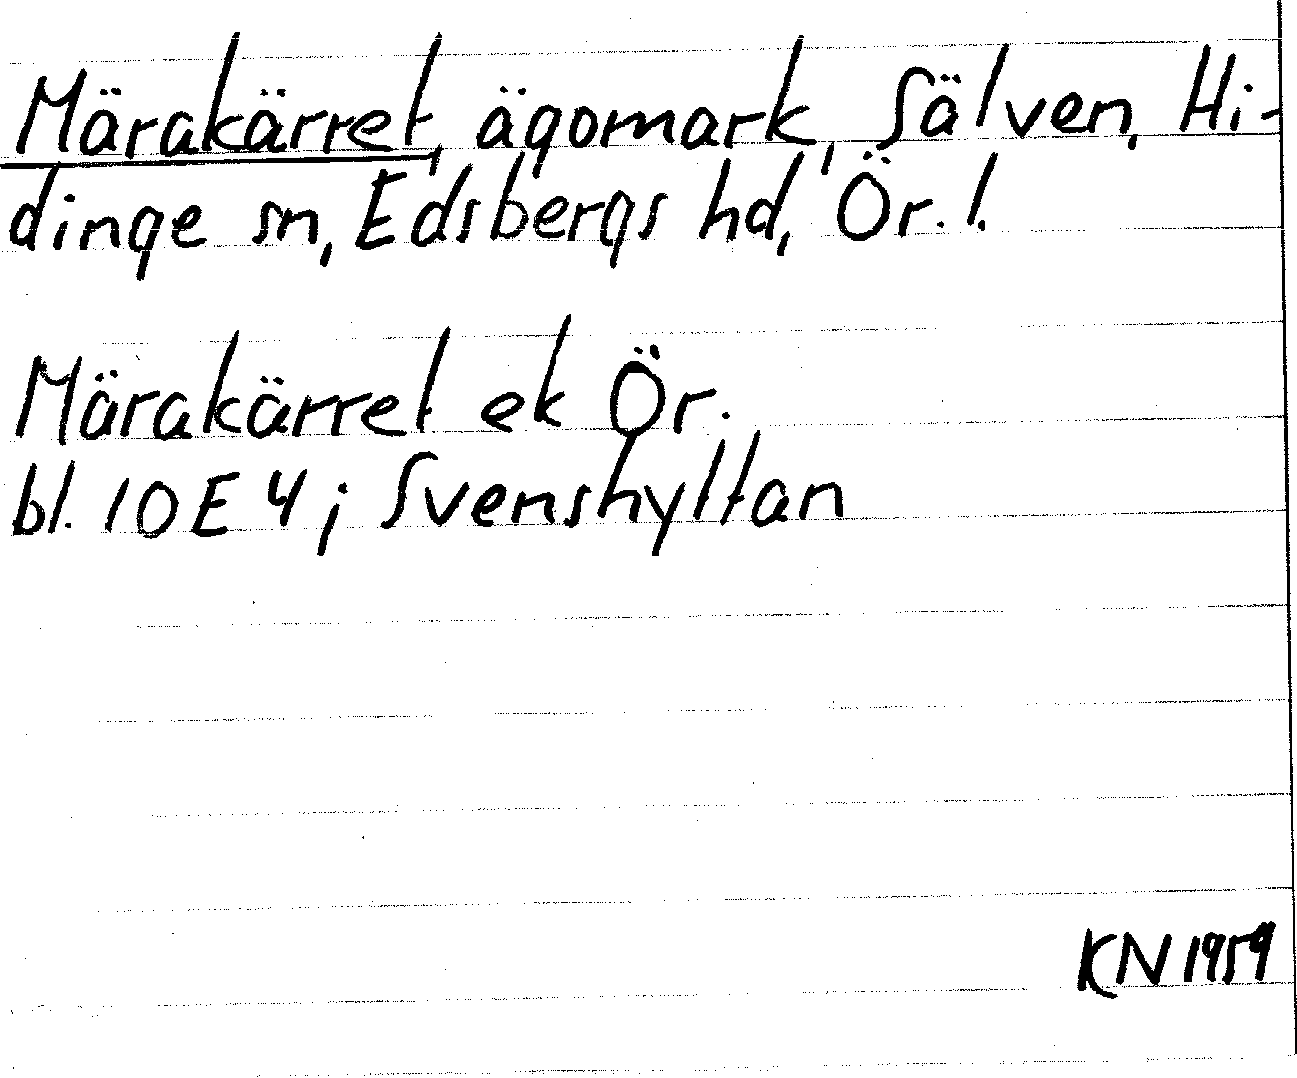 Märakärret, ägomark, Sälven, Hi-
dinge sn, Edsbergs hd, Ör. l.
Märakärret ek Ör.
bl. 10E 4 j Svenshyttan
KN 1959